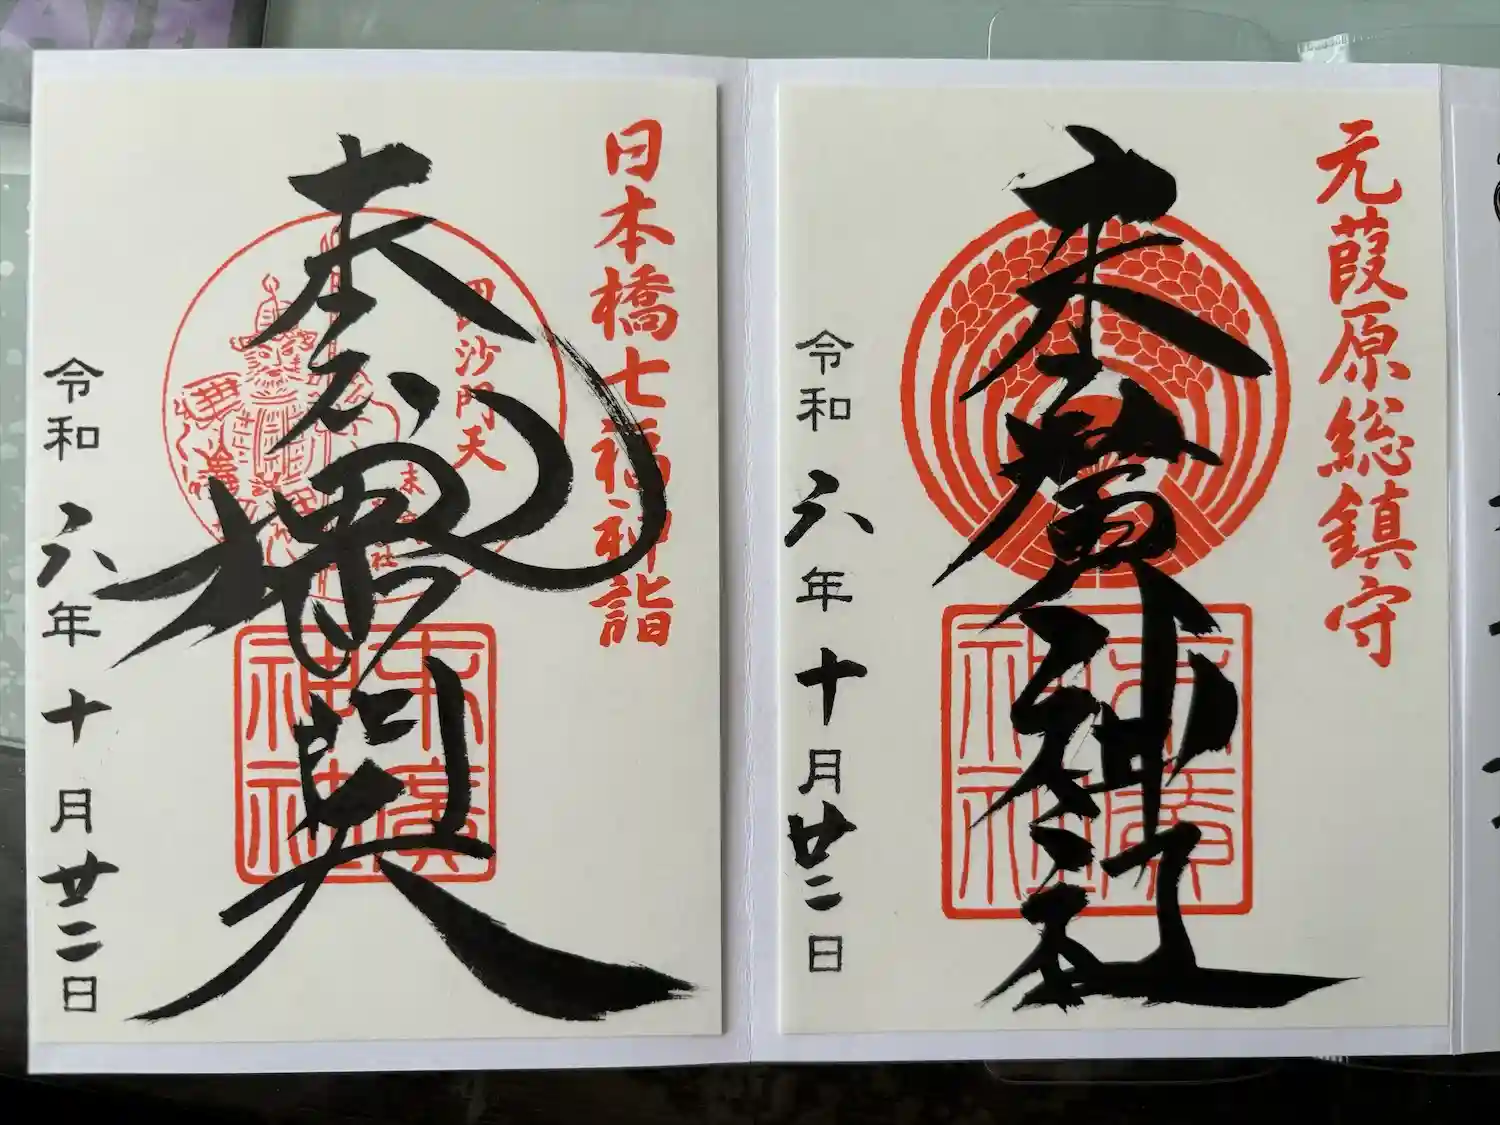 元葭原総鎮守
末廣神社
末廣
神社
令和六年十月廿二日
日本橋七福神詣
毘沙門天
毘沙門天
末廣
神社
令和六年十月廿二日